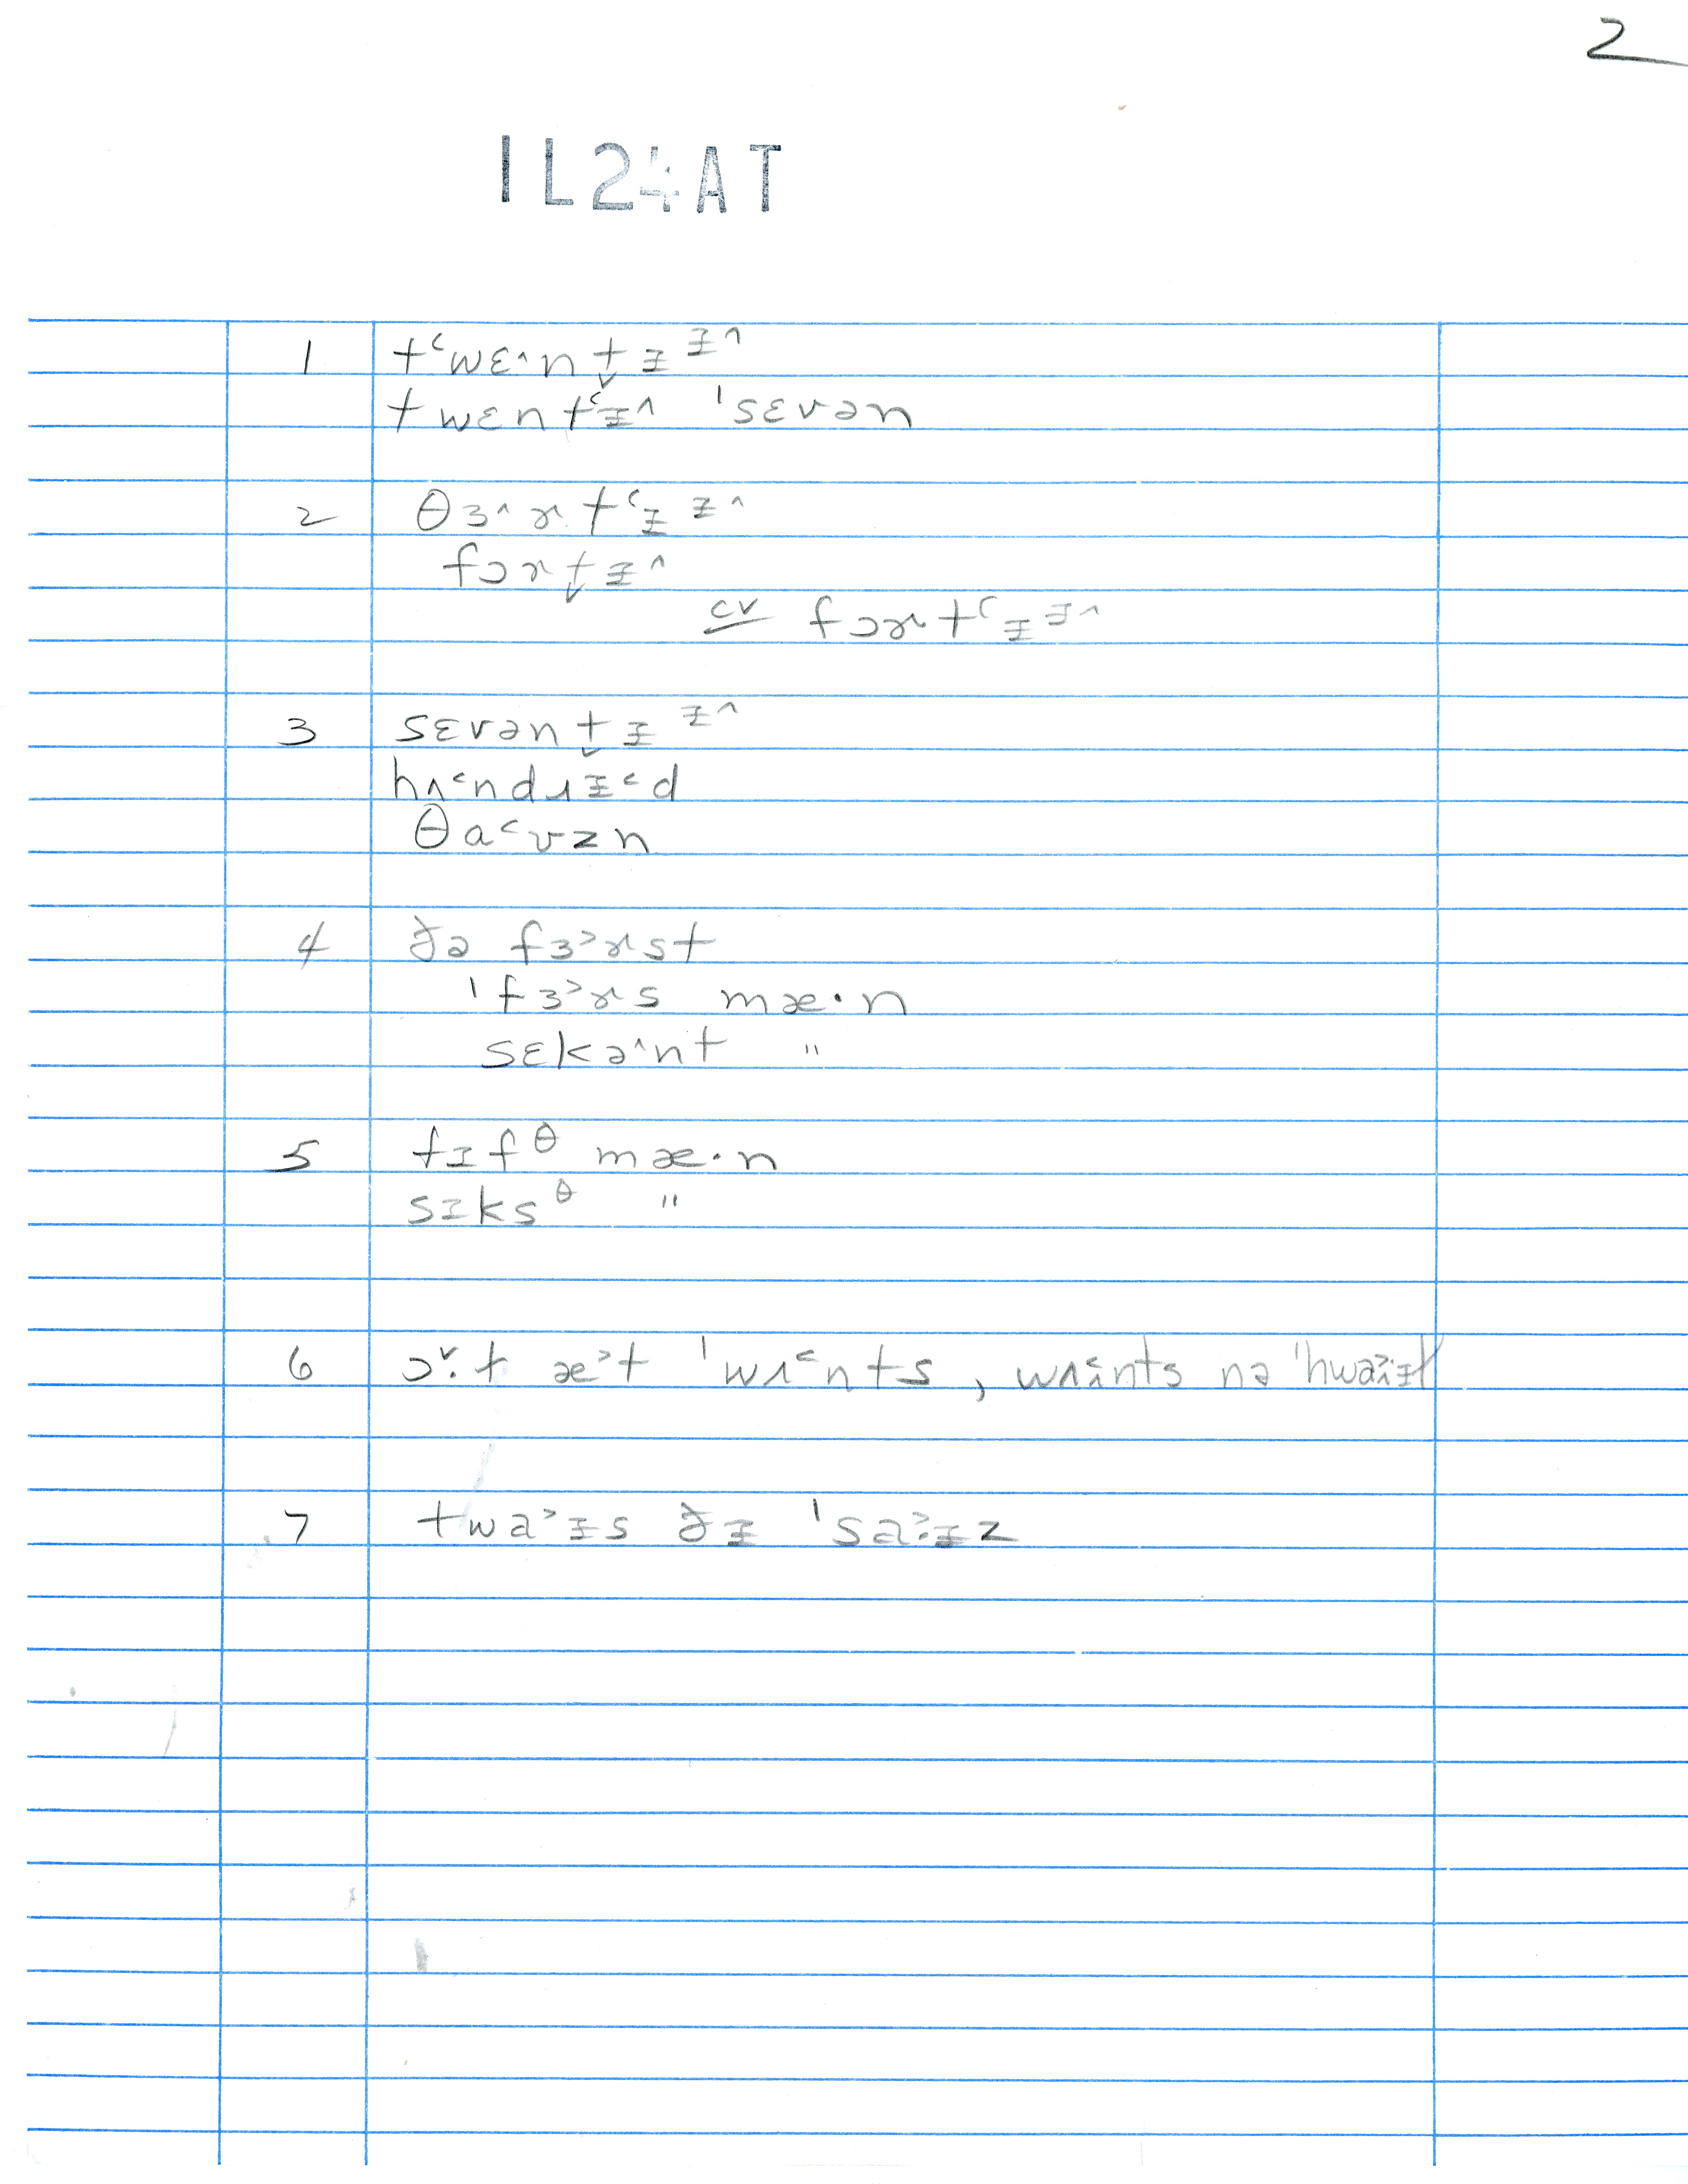 2
IL24AT
1 tʻwɛ˄n t̬ ɪ ᵻ˄
twɛntʻᵻ˄ ˈsɛvən
2 θɜ˄ɚtʻᵻ ᵻ˄
fɔɚt̬ᵻ˄
cv fɔɚtʻᵻ ᵻ˄
3 sɛvənt̬ᵻ ᵻ˄
hʌ˂ndɹᵻ˂d
θa˂ʊzn
4 ðə fɜ˃ɚst
ˈfɜ˃ɚs mæ·n
sɛkə˄nt "
5 fɪfᶿ mæ·n
sɪksᶿ "
6 ɔ˅·t æ˃t ˈwʌ˂nts, wʌ˂nts nə ˈhwa˃·ᵻl
7 twa˃ᵻs ðᵻ ˈsa˃·ᵻz